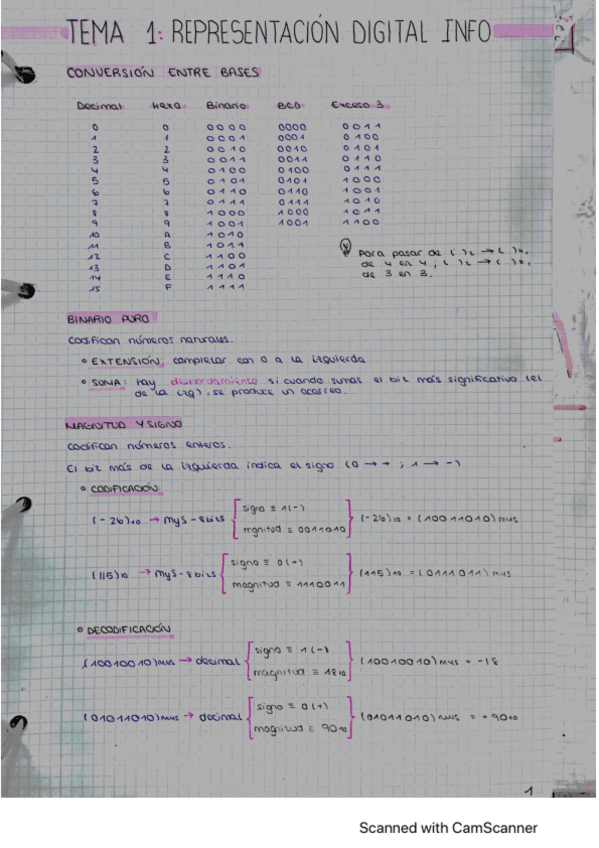 TEMA 1: REPRESENTACIÓN DIGITAL INFO
CONVERSIÓN ENTRE BASES
Decimal Hexa Binario BCD Exceso 3
0 0 0000 0000 0011
1 1 0001 0001 0100
2 2 0010 0010 0101
3 3 0011 0011 0110
4 4 0100 0100 0111
5 5 0101 0101 1000
6 6 0110 0110 1001
7 7 0111 0111 1010
8 8 1000 1000 1011
9 9 1001 1001 1100
10 A 1010
11 B 1011
12 C 1100
13 D 1101
14 E 1110
15 F 1111
Para pasar de ( )₂ → ( )₁₆,
de 4 en 4; ( )₂ → ( )₈,
de 3 en 3.
BINARIO PURO
Codifican números naturales.
• EXTENSIÓN: completar con 0 a la izquierda
• SUMA: Hay desbordamiento si cuando sumas el bit más significativo (el
de la izq), se produce un acarreo.
MAGNITUD Y SIGNO
Codifican números enteros.
El bit más de la izquierda indica el signo (0 → + ; 1 → -)
• CODIFICACIÓN
signo ≡ 1(-)
(-26)₁₀ → MyS - 8bits (-26)₁₀ = (10011010)MyS
mgnitud ≡ 0011010
signo ≡ 0(+)
(115)₁₀ → MyS - 8bits (115)₁₀ = (0111011) MyS
magnitud ≡ 1110011
• DECODIFICACIÓN
signo ≡ 1(-)
(10010010)MyS → decimal (10010010)MyS = -18
magnitud ≡ 18₁₀
signo ≡ 0(+)
(01011010)MyS → decimal (01011010)MyS = +90₁₀
magnitud ≡ 90₁₀
1
Scanned with CamScanner